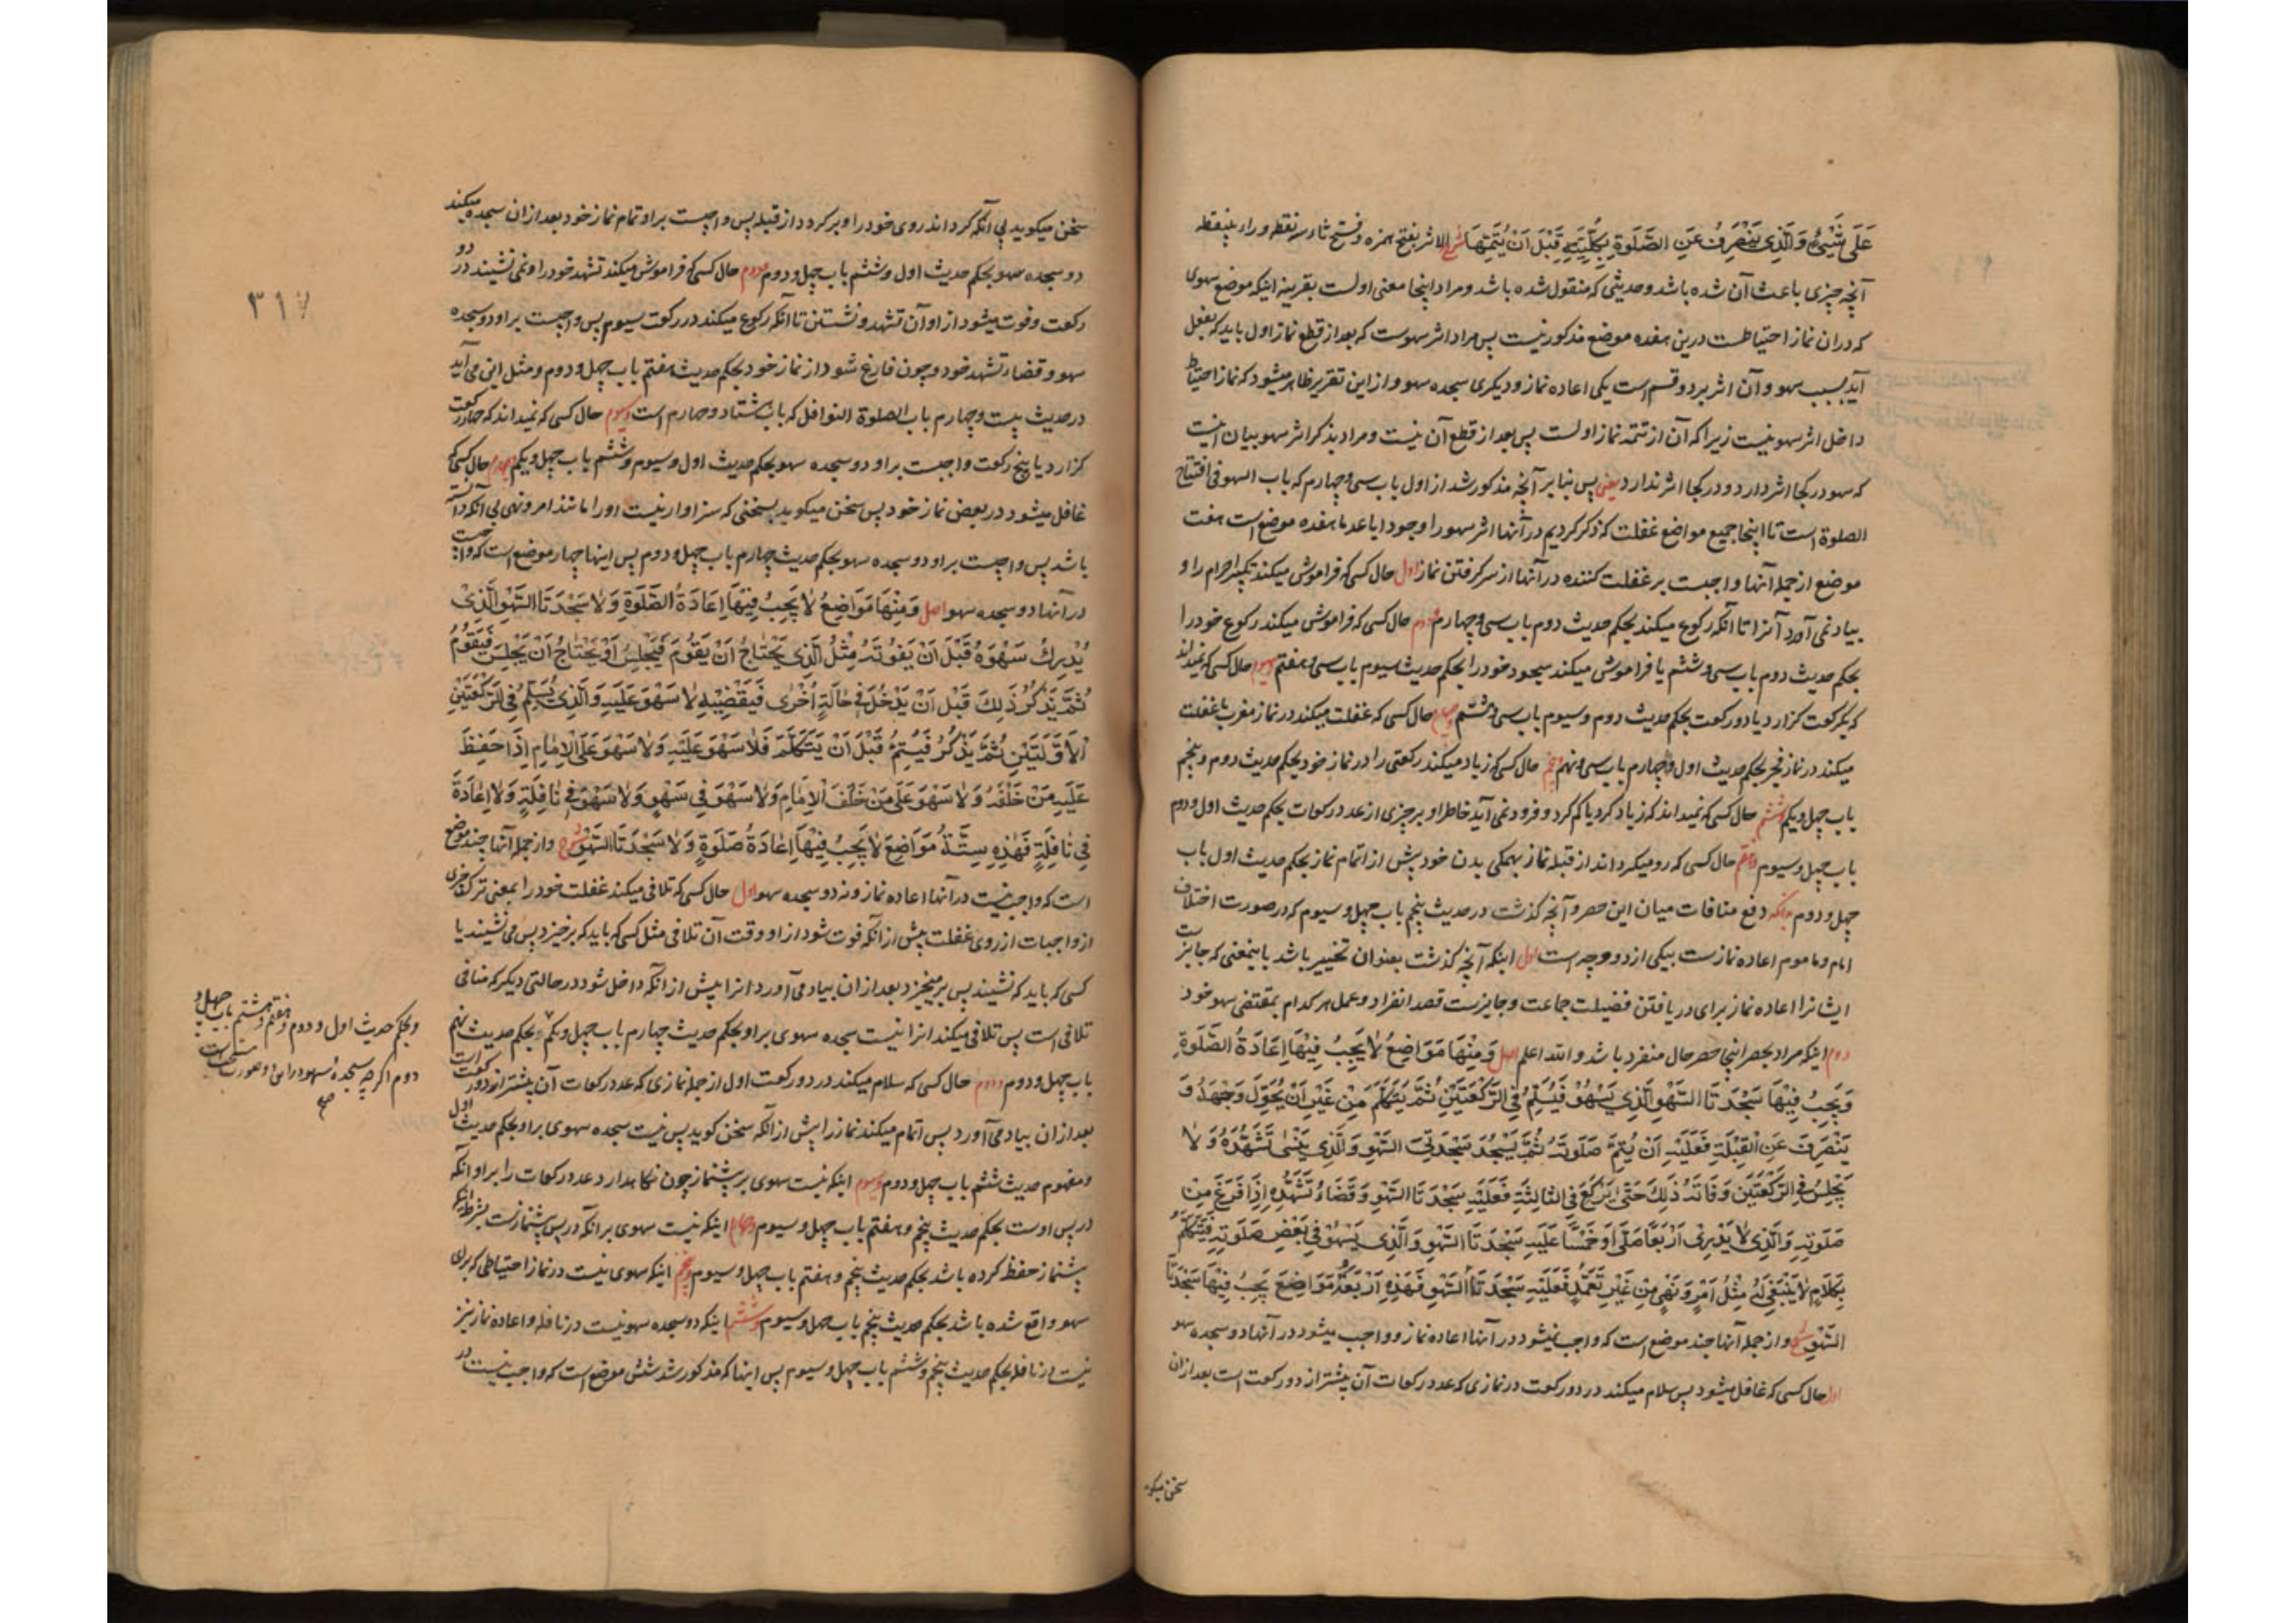 عَلَى شَيْءٍ وَالَّذِي يَنْصَرِفُ عَنِ الصَّلَوةِ بِكُلِّيَّتِهِ قَبْلَ أَنْ يُتِمَّهَا شرح الاثر بفتح همزه و فتح ثاء سه نقطه و راء بینقطه
آنچه چیزی باعث آن شده باشد و حدیثی که منقول شده باشد و مراد اینجا معنی اولست بقرینه اینکه موضع سهوی
که در ان نماز احتیاطست درین هفده موضع مذکور نیست پس مراد اثر سهوست که بعد از قطع نماز اول باید که بفعل
آید بسبب سهو و آن اثر بر دو قسم است یکی اعاده نماز و دیگری سجده سهو و از این تقریر ظاهر میشود که نماز احتیاط
داخل اثر سهو نیست زیرا که آن از تتمه نماز اولست پس بعد از قطع آن نیست و مراد بذکر اثر سهو بیان اینست
که سهو در کجا اثر دارد و در کجا اثر ندارد یعنی پس بنا بر آنچه مذکور شد از اول باب سی و چهارم که باب السهو فی افتتاح
الصلوة است تا اینجا جمیع مواضع غفلت که ذکر کردیم در آنها اثر سهو را وجودا یا عدما هفده موضع است هفت
موضع از جمله آنها واجبست بر غفلت کننده در آنها از سر گرفتن نماز اول حال کسی که فراموش میکند تکبیر احرام را و
بیاد نمی آورد آنرا تا آنکه رکوع میکند بحکم حدیث دوم باب سی و چهارم دوم حال کسی که فراموش میکند رکوع خود را
بحکم حدیث دوم باب سی و ششم یا فراموش میکند سجود خود را بحکم حدیث سیوم باب سی و هفتم وسیوم حال کسی که نمیداند
که یکرکعت گزارد یا دو رکعت بحکم حدیث دوم و سیوم باب سی و ششم وچهارم حال کسی که غفلت میکند در نماز مغرب یا غفلت
میکند در نماز فجر بحکم حدیث اول و چهارم باب سی و نهم وپنجم حال کسی که زیاد میکند رکعتی را در نماز خود بحکم حدیث دوم و پنجم
باب چهل و یکم وششم حال کسی که نمیداند که زیاد کرد یا کم کرد و فرود نمی آید خاطر او بر چیزی از عدد رکعات بحکم حدیث اول و دوم
باب چهل و سیوم وهفتم حال کسی که رو میگرداند از قبله نماز بهمگی بدن خود پیش از اتمام نماز بحکم حدیث اول باب
چهل و دوم بدانکه دفع منافات میان این حصر و آنچه گذشت در حدیث پنجم باب چهل و سیوم که در صورت اختلاف
امام و ماموم اعاده نمازست بیکی از دو وجه است اول اینکه آنچه گذشت بعنوان تخییر باشد باینمعنی که جایزست
ایشانرا اعاده نماز برای دریافتن فضیلت جماعت و جایزست قصد انفراد و عمل هر کدام بمقتضی سهو خود
دوم اینکه مراد بحصر اینجا حصر حال منفرد باشد والله اعلم اصل وَمِنْهَا مَوَاضِعُ لَا يَجِبُ فِيْهَا إِعَادَةُ الصَّلَوةِ
وَيَجِبُ فِيْهَا سَجْدَتَا السَّهْوِ الَّذِي يَسْهُوْ فَيُسَلِّمُ فِي الرَّكْعَتَيْنِ ثُمَّ يَتَكَلَّمُ مِنْ غَيْرِ أَنْ يُحَوِّلَ وَجْهَهُ وَ
يَنْصَرِفَ عَنِ الْقِبْلَةِ فَعَلَيْهِ أَنْ يُتِمَّ صَلَوتَهُ ثُمَّ يَسْجُدَ سَجْدَتَيِ السَّهْوِ وَالَّذِي يَنْسَى تَشَهُّدَهُ وَلَا
يَجْلِسُ فِي الرَّكْعَتَيْنِ وَفَاتَهُ ذَلِكَ حَتَّى يَرْكَعَ فِي الثَّالِثَةِ فَعَلَيْهِ سَجْدَتَا السَّهْوِ وَقَضَاءُ تَشَهُّدِهِ إِذَا فَرَغَ مِنْ
صَلَوتِهِ وَالَّذِي لَا يَدْرِي أَرْبَعًا صَلَّى أَوْ خَمْسًا عَلَيْهِ سَجْدَتَا السَّهْوِ وَالَّذِي يَسْهُوْ فِي بَعْضِ صَلَوتِهِ فَيَتَكَلَّمُ
بِكَلَامٍ لَا يَنْبَغِي لَهُ مِثْلُ أَمْرٍ وَنَهْيٍ مِنْ غَيْرِ تَعَمُّدٍ فَعَلَيْهِ سَجْدَتَا السَّهْوِ فَهَذِهِ أَرْبَعَةُ مَوَاضِعَ يَجِبُ فِيْهَا سَجْدَتَا
السَّهْوِ شرح و از جمله آنها چند موضع است که واجب نمیشود در آنها اعاده نماز و واجب میشود در آنها دو سجده سهو
اول حال کسی که غافل میشود پس سلام میکند در دو رکعت در نمازی که عدد رکعات آن بیشتر از دو رکعت است بعد از ان
سخن میگوید
۳۱۷
سخن میگوید بی آنکه گرداند روی خود را و برگردد از قبله پس واجبست بر او تمام نماز خود بعد از ان سجده میکند
دو سجده سهو بحکم حدیث اول و ششم باب چهل و دوم دوم حال کسی که فراموش میکند تشهد خود را و نمی نشیند در دو
رکعت و فوت میشود از او آن تشهد و نشستن تا آنکه رکوع میکند در رکعت سیوم پس واجبست بر او دو سجده
سهو و قضاء تشهد خود چون فارغ شود از نماز خود بحکم حدیث هفتم باب چهل و دوم و مثل این می آید
در حدیث بیست و چهارم باب الصلوة النوافل که باب هشتاد و چهارم است وسیوم حال کسی که نمیداند که چهار رکعت
گزارد یا پنج رکعت واجبست بر او دو سجده سهو بحکم حدیث اول و سیوم و ششم باب چهل و یکم وچهارم حال کسی که
غافل میشود در بعض نماز خود پس سخن میگوید بسخنی که سزاوار نیست او را مانند امر و نهی بی آنکه دانسته
باشد پس واجبست بر او دو سجده سهو بحکم حدیث چهارم باب چهل و دوم پس اینها چهار موضع است که واجبست
در آنها دو سجده سهو اصل وَمِنْهَا مَوَاضِعُ لَا يَجِبُ فِيْهَا إِعَادَةُ الصَّلَوةِ وَلَا سَجْدَتَا السَّهْوِ الَّذِي
يُدْرِكُ سَهْوَهُ قَبْلَ أَنْ يَفُوتَهُ مِثْلُ الَّذِي يَحْتَاجُ أَنْ يَقُوْمَ فَيَجْلِسُ أَوْ يَحْتَاجُ أَنْ يَجْلِسَ فَيَقُوْمُ
ثُمَّ يَذْكُرُ ذَلِكَ قَبْلَ أَنْ يَدْخُلَ فِي حَالَةٍ أُخْرَى فَيَقْضِيْهِ لَا سَهْوَ عَلَيْهِ وَالَّذِي يُسَلِّمُ فِي الرَّكْعَتَيْنِ
الْأَوَّلَتَيْنِ ثُمَّ يَذْكُرُ فَيُتِمُّ قَبْلَ أَنْ يَتَكَلَّمَ فَلَا سَهْوَ عَلَيْهِ وَلَا سَهْوَ عَلَى الْإِمَامِ إِذَا حَفِظَ
عَلَيْهِ مَنْ خَلْفَهُ وَلَا سَهْوَ عَلَى مَنْ خَلْفَ الْإِمَامِ وَلَا سَهْوَ فِي سَهْوٍ وَلَا سَهْوَ فِي نَافِلَةٍ وَلَا إِعَادَةَ
فِي نَافِلَةٍ فَهَذِهِ سِتَّةُ مَوَاضِعَ لَا يَجِبُ فِيْهَا إِعَادَةُ صَلَوةٍ وَلَا سَجْدَتَا السَّهْوِ شرح و از جمله آنها چند موضع
است که واجب نیست در آنها اعاده نماز و نه دو سجده سهو اول حال کسی که تلافی میکند غفلت خود را بمعنی ترک چیزی
از واجبات از روی غفلت پیش از آنکه فوت شود از او وقت آن تلافی مثل کسی که باید که برخیزد پس می نشیند یا
کسی که باید که نشیند پس برمیخیزد بعد از ان بیاد می آورد انرا پیش از انکه داخل شود در حالتی دیگر که منافی
تلافی است پس تلافی میکند انرا نیست سجده سهوی بر او بحکم حدیث چهارم باب چهل و یکم و بحکم حدیث نهم
باب چهل و دوم ودوم حال کسی که سلام میکند در دو رکعت اول از جمله نمازی که عدد رکعات آن بیشتر از دو رکعت است
بعد از ان بیاد می آورد پس اتمام میکند نماز را پیش از آنکه سخن گوید پس نیست سجده سهوی بر او بحکم حدیث اول
و مفهوم حدیث ششم باب چهل و دوم وسیوم اینکه نیست سهوی بر پیشنماز چون نگاهدارد عدد رکعات را بر او آنکه
در پس اوست بحکم حدیث پنجم و هفتم باب چهل و سیوم وچهارم اینکه نیست سهوی بر آنکه در پس پیشنمازست بشرط اینکه
پیشنماز حفظ کرده باشد بحکم حدیث پنجم و هفتم باب چهل و سیوم وپنجم اینکه سهوی نیست در نماز احتیاطی که برای
سهو واقع شده باشد بحکم حدیث پنجم باب چهل و سیوم وششم اینکه دو سجده سهو نیست در نافله و اعاده نماز نیز
نیست در نافله بحکم حدیث پنجم و ششم باب چهل و سیوم پس اینها که مذکور شد شش موضع است که واجب نیست در
و بحکم حدیث اول و دوم و هفتم و هشتم باب چهل و
دوم اگر چه سجده سهو در این دو صورت مستحب است
صح